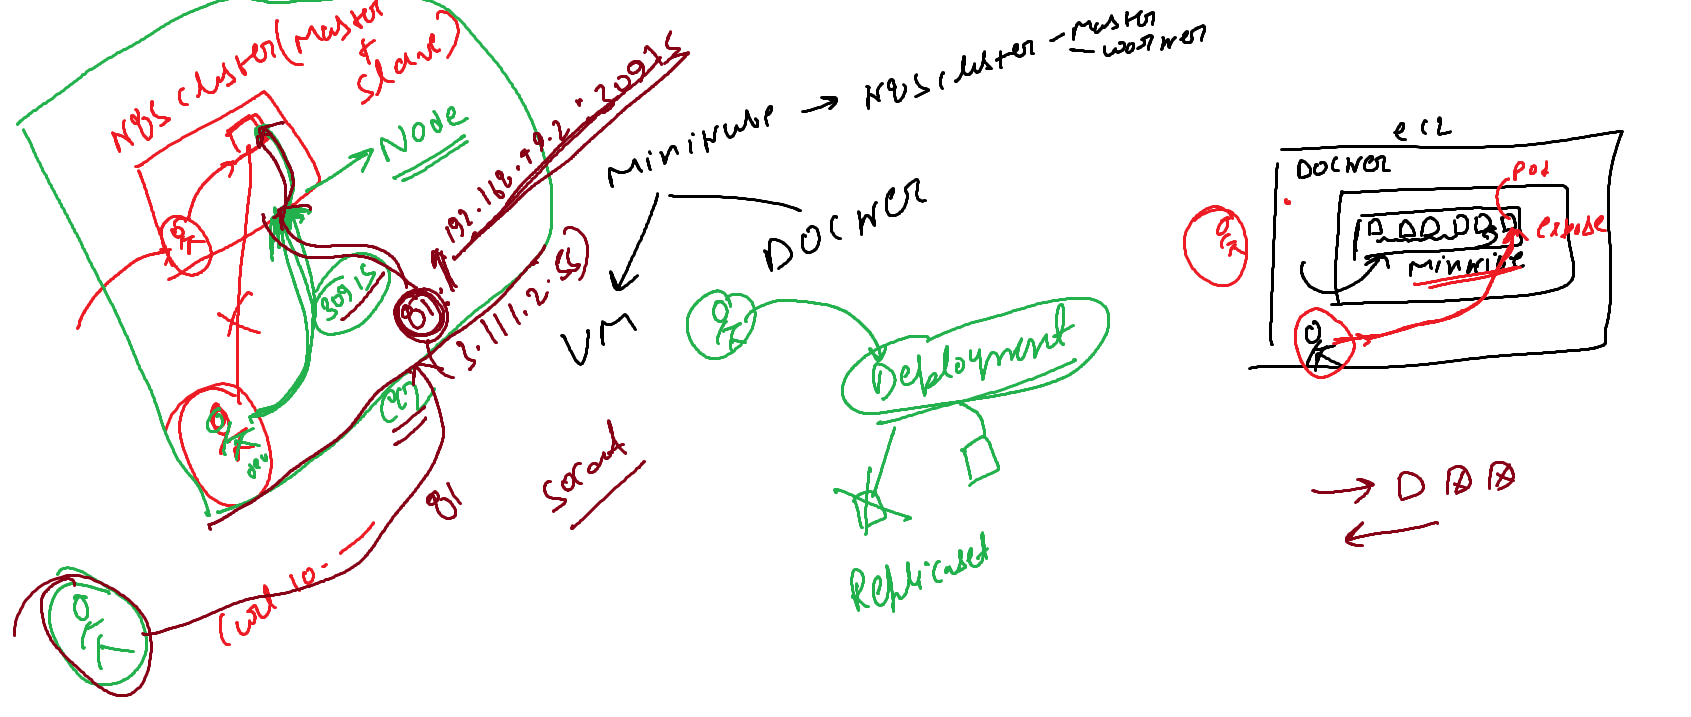 K8S cluster(Master
+
slave)
Node
192.168.49.2:30915
30915
81
(3.111.2.55)
81
socat
(curl 10.
Minikube → K8S cluster - Master
- worker
DOCKER
VM
Deployment
Replicaset
ec2
DOCKER
Pod
expose
minikube
dev